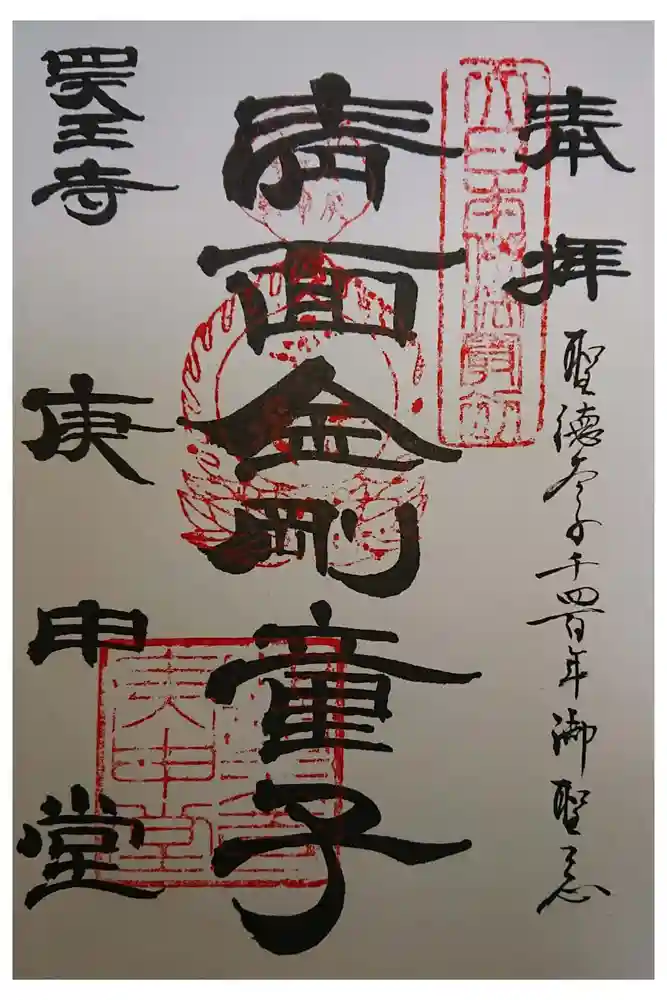 奉拝
大日本佛法最初
聖徳太子千四百年御聖忌
青面金剛童子
四天王寺
庚申堂
庚申堂